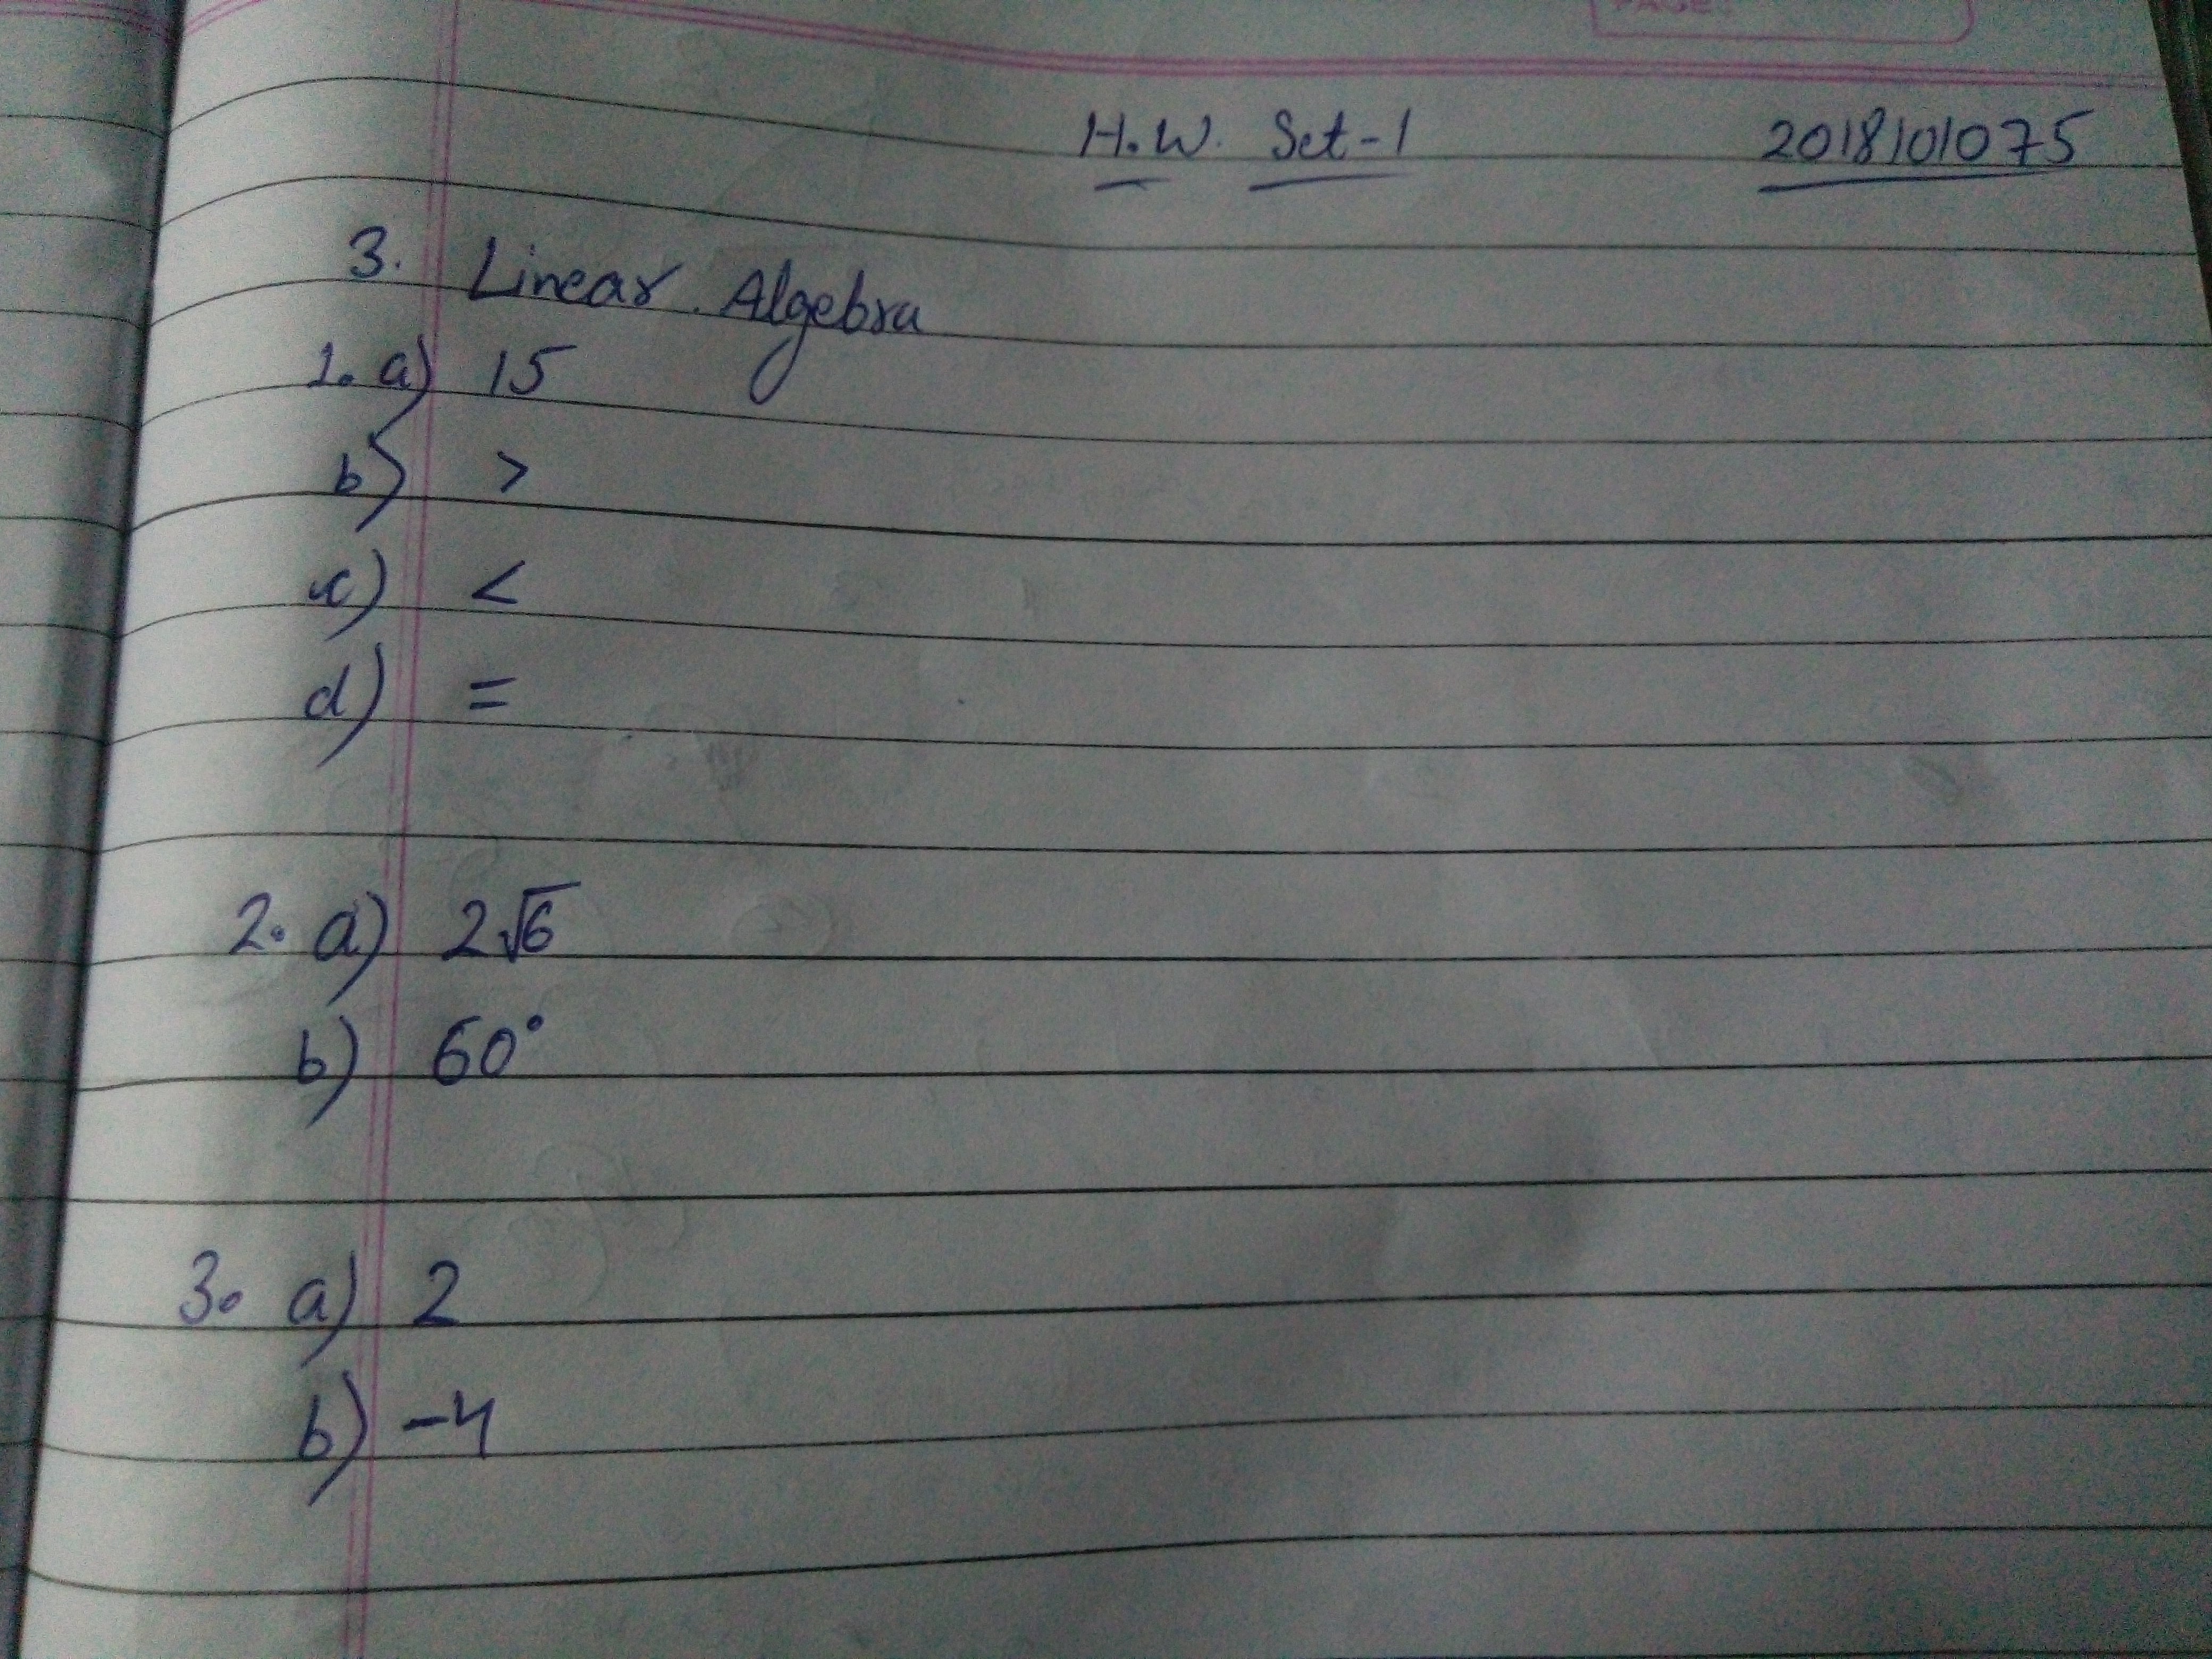 PAGE:
H.W. Set-1 201810107 5
3. Linear Algebra
1. a) 15
b) >
c) <
d) =
2. a) 2√6
b) 60°
3. a) 2
b) -4